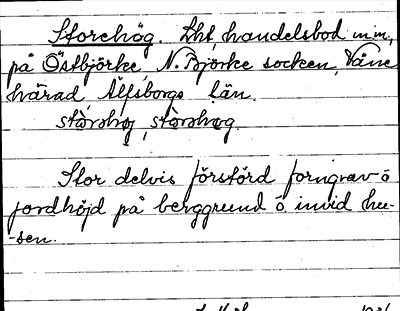 Storehög. Lht, handelsbod m.m.,
på Östbjörke, N. Björke socken, Väne
härad, Älfsborgs län.
Stor delvis förstörd forngrav ö
jordhöjd på berggrund ö. invid hu-
-sen.